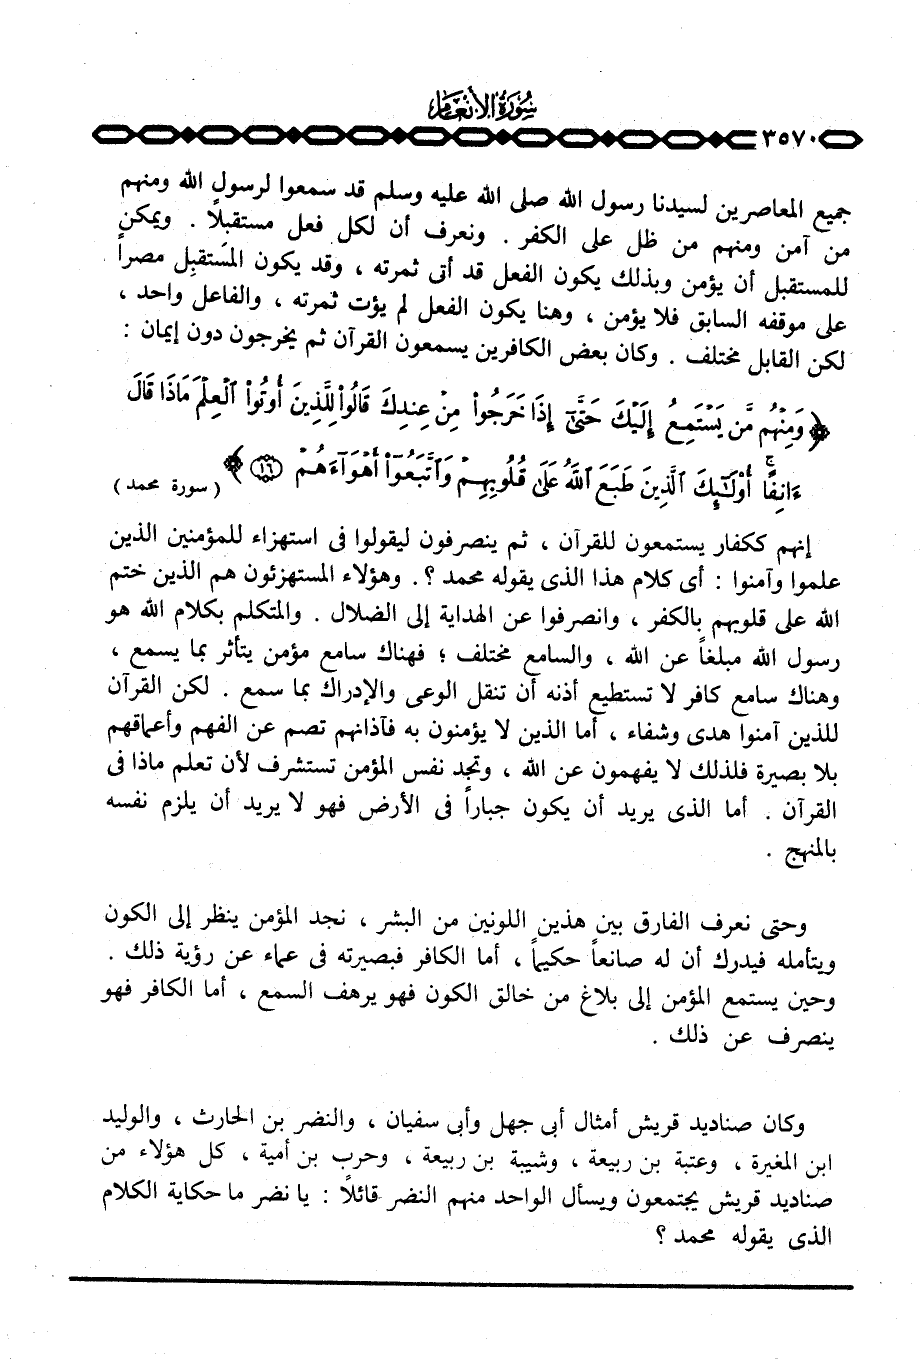 سورة الأنعام
٣٥٧٠
جميع المعاصرين لسيدنا رسول الله صلى الله عليه وسلم قد سمعوا لرسول الله ومنهم
من آمن ومنهم من ظل على الكفر . ونعرف أن لكل فعل مستقبلاً . ويمكن
للمستقبل أن يؤمن وبذلك يكون الفعل قد أتى ثمرته ، وقد يكون المستَقبِل مصراً
على موقفه السابق فلا يؤمن ، وهنا يكون الفعل لم يؤت ثمرته ، والفاعل واحد ،
لكن القابل مختلف . وكان بعض الكافرين يسمعون القرآن ثم يخرجون دون إيمان :
﴿ وَمِنْهُم مَّن يَسْتَمِعُ إِلَيْكَ حَتَّىٰٓ إِذَا خَرَجُوا۟ مِنْ عِندِكَ قَالُوا۟ لِلَّذِينَ أُوتُوا۟ ٱلْعِلْمَ مَاذَا قَالَ
ءَانِفًا ۚ أُو۟لَٰٓئِكَ ٱلَّذِينَ طَبَعَ ٱللَّهُ عَلَىٰ قُلُوبِهِمْ وَٱتَّبَعُوٓا۟ أَهْوَآءَهُمْ ١٦ ﴾ ( سورة محمد )
إنهم ككفار يستمعون للقرآن ، ثم ينصرفون ليقولوا فى استهزاء للمؤمنين الذين
علموا وآمنوا : أى كلام هذا الذى يقوله محمد ؟. وهؤلاء المستهزئون هم الذين ختم
الله على قلوبهم بالكفر ، وانصرفوا عن الهداية إلى الضلال . والمتكلم بكلام الله هو
رسول الله مبلغاً عن الله ، والسامع مختلف ؛ فهناك سامع مؤمن يتأثر بما يسمع ،
وهناك سامع كافر لا تستطيع أذنه أن تنقل الوعى والإدراك بما سمع . لكن القرآن
للذين آمنوا هدى وشفاء ، أما الذين لا يؤمنون به فآذانهم تصم عن الفهم وأعماقهم
بلا بصيرة فلذلك لا يفهمون عن الله ، وتجد نفس المؤمن تستشرف لأن تعلم ماذا فى
القرآن . أما الذى يريد أن يكون جباراً فى الأرض فهو لا يريد أن يلزم نفسه
بالمنهج .
وحتى نعرف الفارق بين هذين اللونين من البشر ، نجد المؤمن ينظر إلى الكون
ويتأمله فيدرك أن له صانعاً حكيماً ، أما الكافر فبصيرته فى عماء عن رؤية ذلك .
وحين يستمع المؤمن إلى بلاغ من خالق الكون فهو يرهف السمع ، أما الكافر فهو
ينصرف عن ذلك .
وكان صناديد قريش أمثال أبى جهل وأبى سفيان ، والنضر بن الحارث ، والوليد
ابن المغيرة ، وعتبة بن ربيعة ، وشيبة بن ربيعة ، وحرب بن أمية ، كل هؤلاء من
صناديد قريش يجتمعون ويسأل الواحد منهم النضر قائلاً : يا نضر ما حكاية الكلام
الذى يقوله محمد ؟